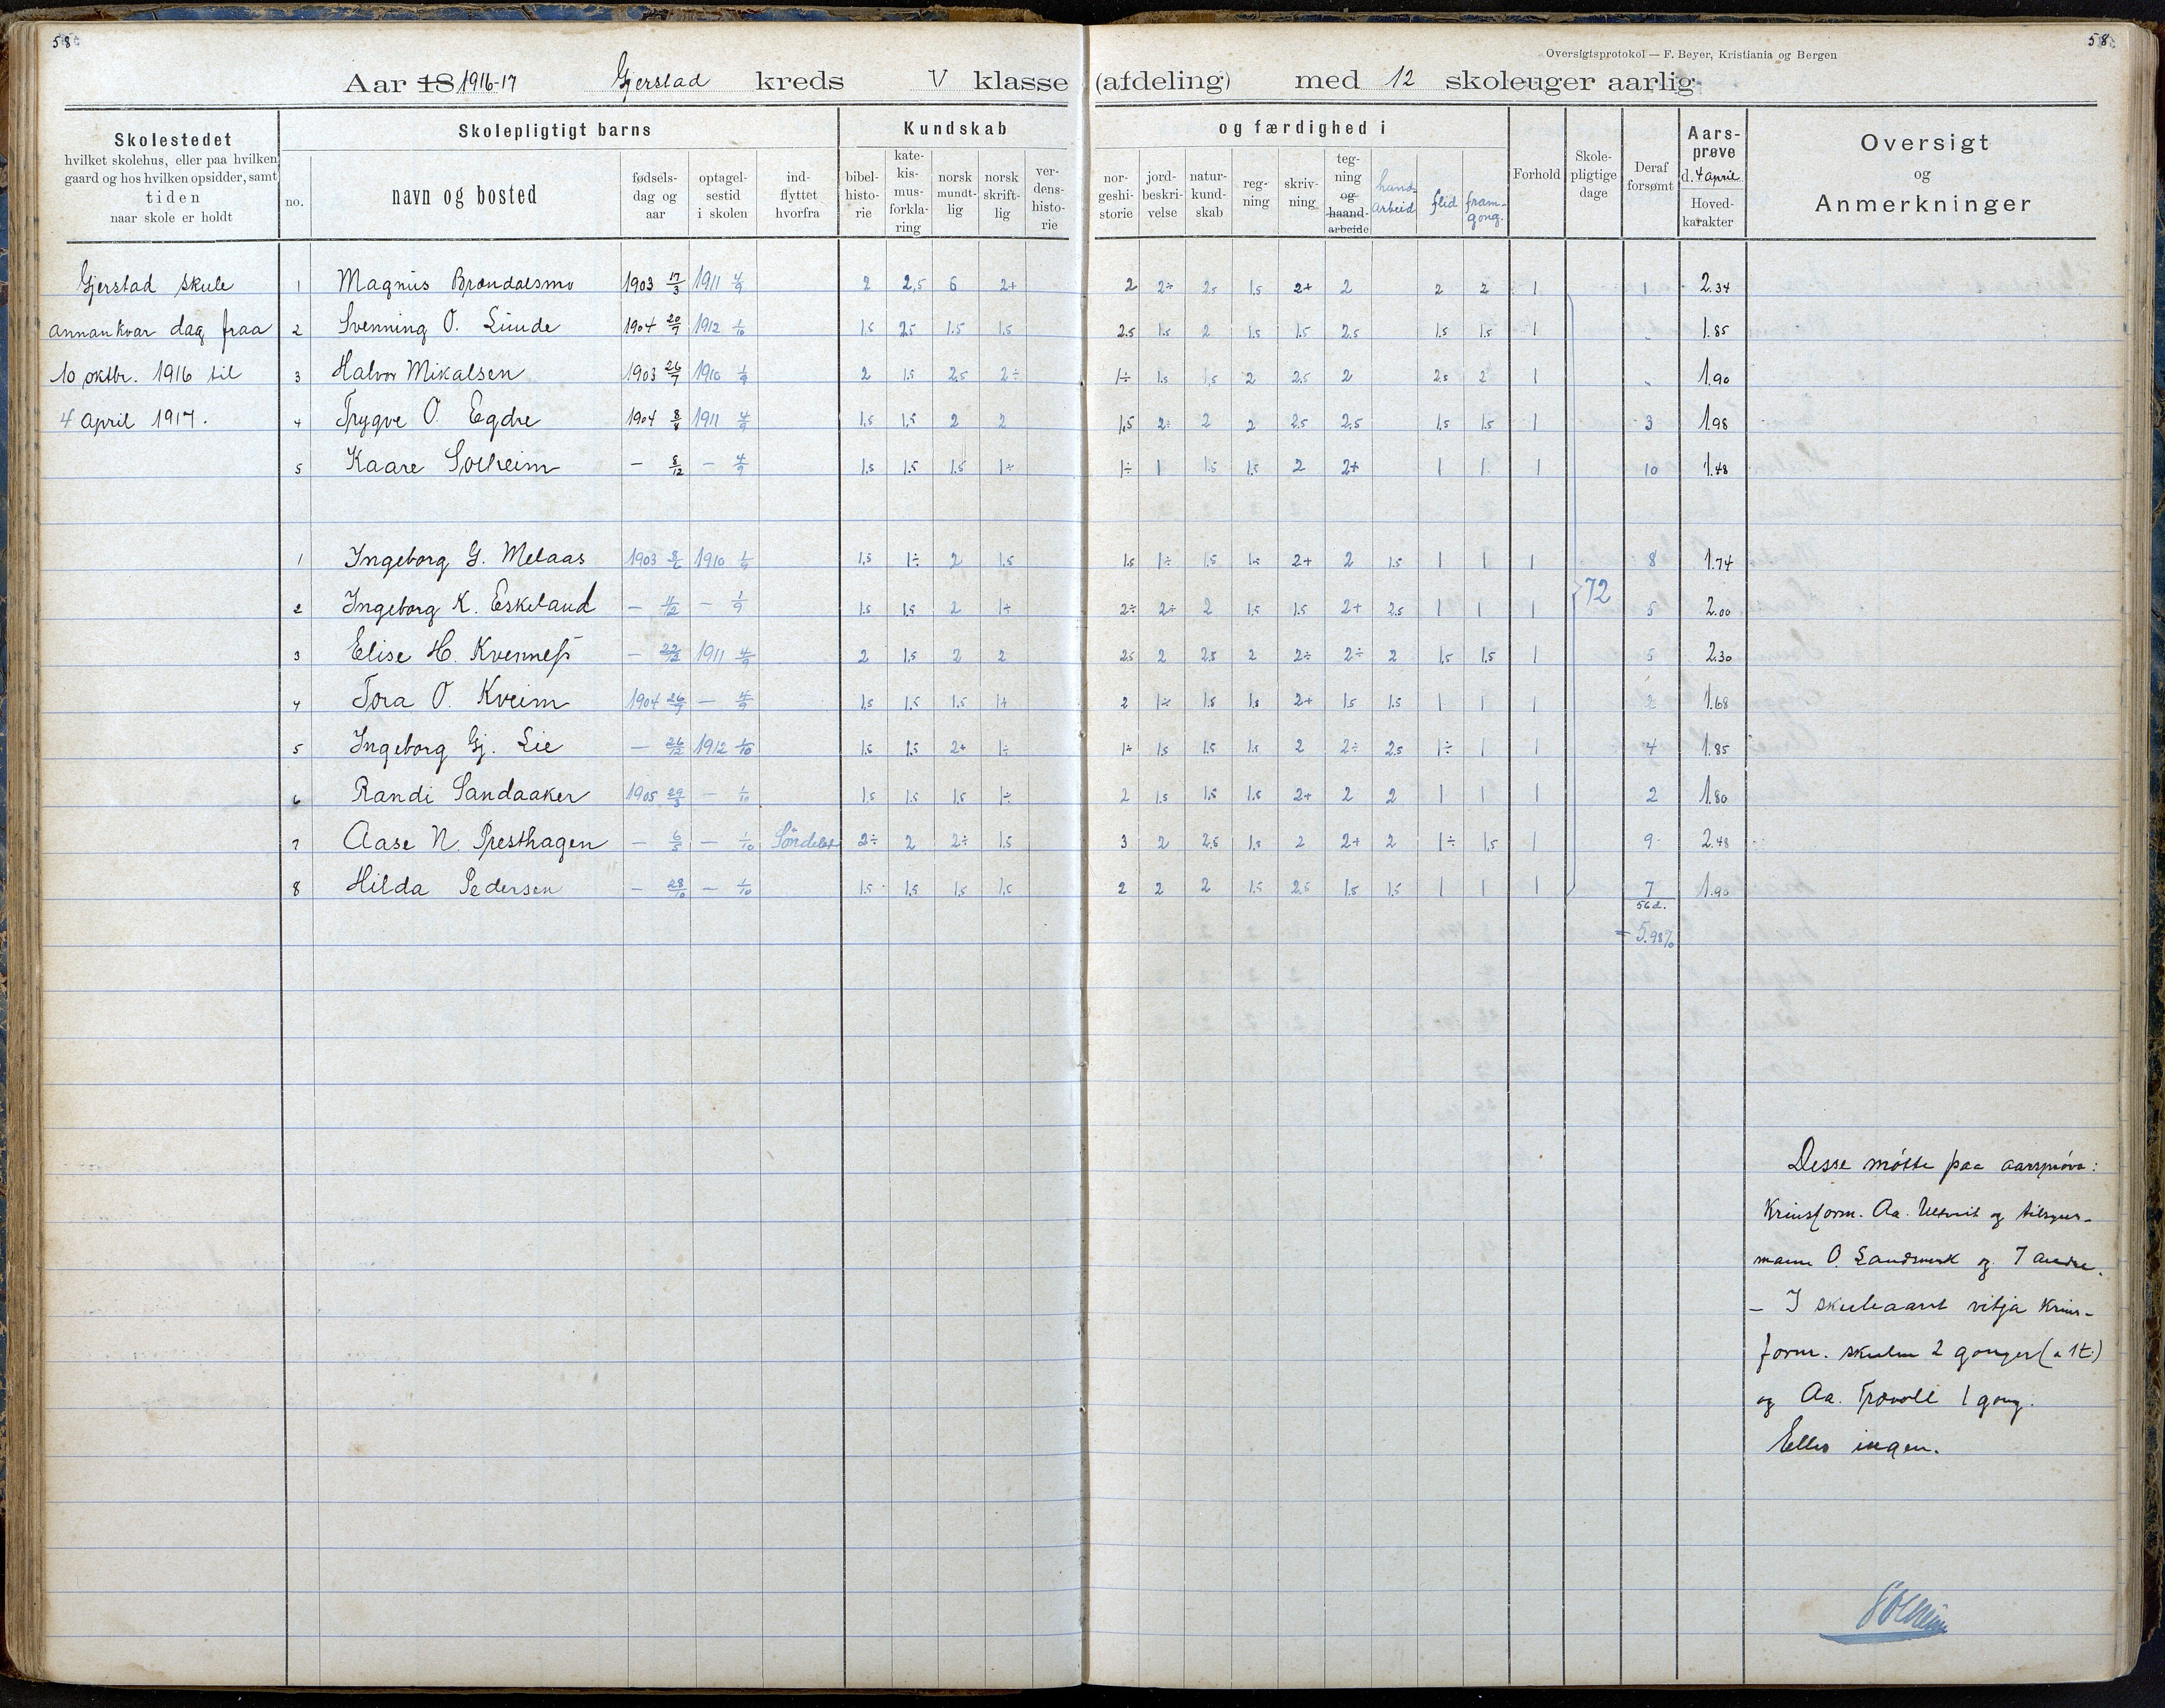 58
58
Oversigtsprotokol — F. Beyer, Kristiania og Bergen
Aar 18 1916-17 Gjerstad kreds V klasse (afdeling) med 12 skoleuger aarlig
Skolestedet
hvilket skolehus, eller paa hvilken
gaard og hos hvilken opsidder, samt
tiden
naar skole er holdt
Skolepligtigt barns
no.
navn og bosted
fødsels-
dag og
aar
optagel-
sestid
i skolen
ind-
flyttet
hvorfra
Kundskab
bibel-
histo-
rie
kate-
kis-
mus-
forkla-
ring
norsk
mundt-
lig
norsk
skrift-
lig
ver-
dens-
histo-
rie
og færdighed i
nor-
geshi-
storie
jord-
beskri-
velse
natur-
kund-
skab
reg-
ning
skriv-
ning
teg-
ning
og
haand-
arbeide
hand-
arbeid
flid
fram-
gong.
Forhold
Skole-
pligtige
dage
Deraf
forsømt
Aars-
prøve
d. 4 april
Hoved-
karakter
Oversigt
og
Anmerkninger
Gjerstad skule 1 Magnus Brøndalsmo 1903 17/3 1911 4/9 2 2,5 6 2+ 2 2÷ 2.5 1.5 2+ 2 2 2 1 1 2.34
annankvar dag fraa 2 Svenning O. Lunde 1904 20/7 1912 1/10 1.5 2.5 1.5 1.5 2.5 1.5 2 1.5 1.5 2.5 1.5 1.5 1 " 1.85
10 oktbr. 1916 til 3 Halvor Mikalsen 1903 26/7 1910 1/9 2 1.5 2.5 2÷ 1÷ 1.5 1.5 2 2.5 2 2.5 2 1 " 1.90
4 april 1917. 4 Trygve O. Egdre 1904 8/8 1911 4/9 1.5 1.5 2 2 1.5 2÷ 2 2 2.5 2.5 1.5 1.5 1 3 1.98
5 Kaare Solheim — 8/12 — 4/9 1.5 1.5 1.5 1÷ 1÷ 1 1.5 1.5 2 2+ 1 1 1 10 1.48
1 Ingeborg G. Melaas 1903 8/6 1910 1/9 1.5 1÷ 2 1.5 1.5 1÷ 1.5 1.5 2+ 2 1.5 1 1 1 8 1.74
72
2 Ingeborg K. Eskeland — 4/12 — 1/9 1.5 1.5 2 1÷ 2÷ 2÷ 2 1.5 1.5 2+ 2.5 1 1 1 5 2.00
3 Elise H. Kvenness — 22/12 1911 4/9 2 1.5 2 2 2.5 2 2.5 2 2÷ 2÷ 2 1.5 1.5 1 5 2.30
4 Tora O. Kveim 1904 26/7 — 4/9 1.5 1.5 1.5 1+ 2 1÷ 1.5 1.5 2+ 1.5 1.5 1 1 1 2 1.68
5 Ingeborg Gj. Lie — 26/12 1912 1/10 1.5 1.5 2+ 1÷ 1÷ 1.5 1.5 1.5 2 2÷ 2.5 1÷ 1 1 4 1.85
6 Randi Sandaaker 1905 29/3 — 1/10 1.5 1.5 1.5 1÷ 2 1.5 1.5 1.5 2+ 2 2 1 1 1 2 1.80
7 Aase N. Presthagen — 6/5 — 1/10 Söndeled 2÷ 2 2÷ 1.5 3 2 2.5 1.5 2 2+ 2 1÷ 1.5 1 9 2.48
8 Hilda Pedersen — 28/10 — 1/10 1.5 1.5 1.5 1.5 2 2 2 1.5 2.5 1.5 1.5 1 1 1 7 1.90
56 d.
= 5.98%
Desse møtte paa aarsprøva:
Krinsform. Aa. Ulltveit og tilsyns-
mann O. Landsverk og 7 andre.
— I skuleaaret vitja Krins-
form. skulen 2 gonger (a 1t)
og Aa. Trovoll 1 gong.
Ellers ingen.
Solheim